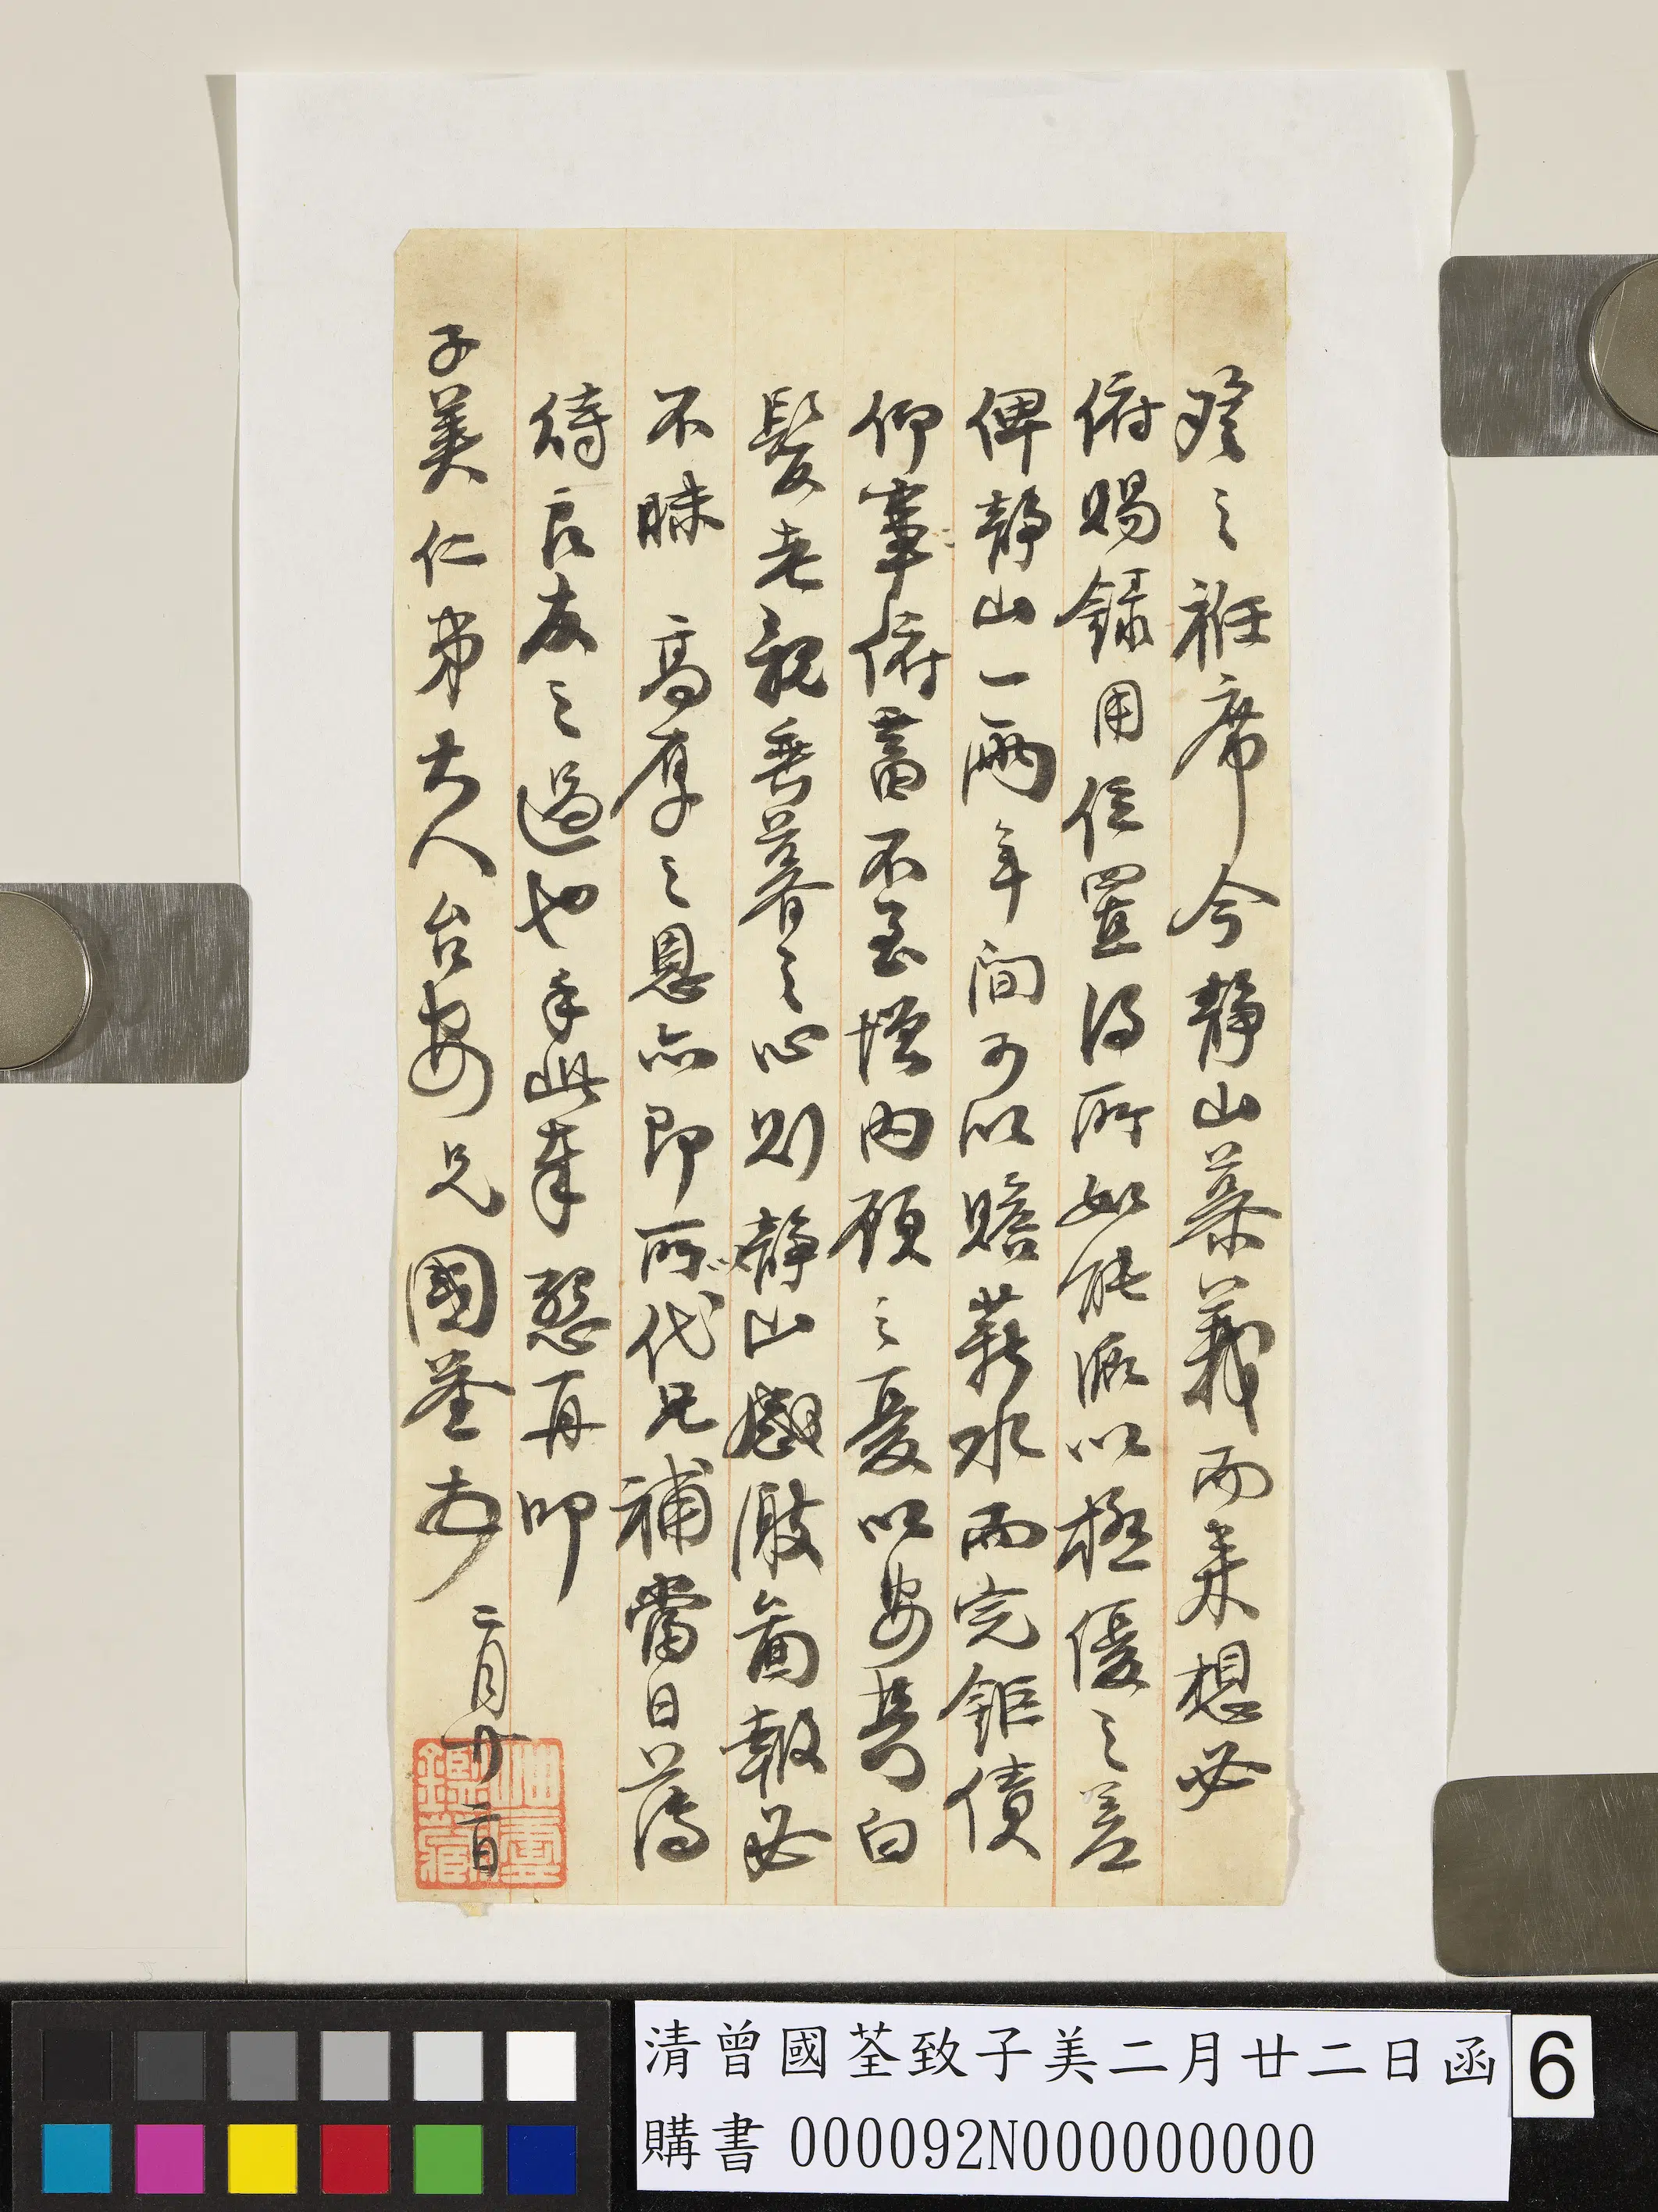 登之袵席今靜山慕義而來想必
俯賜錄用位置得所如能派以極優之差
俾靜山一兩年間可以贍薪水而完鉅債
仰事俯畜不至增內顧之憂以安其白
髮老親垂暮之心則靜山感激圖報必
不昧高厚之恩亦即所代兄補當日薄
待良友之過也手此奉懇再叩
子美仁弟大人台安兄國荃頓二月廿二日
清曾國荃致子美二月廿二日函
購書 000092N000000000
6